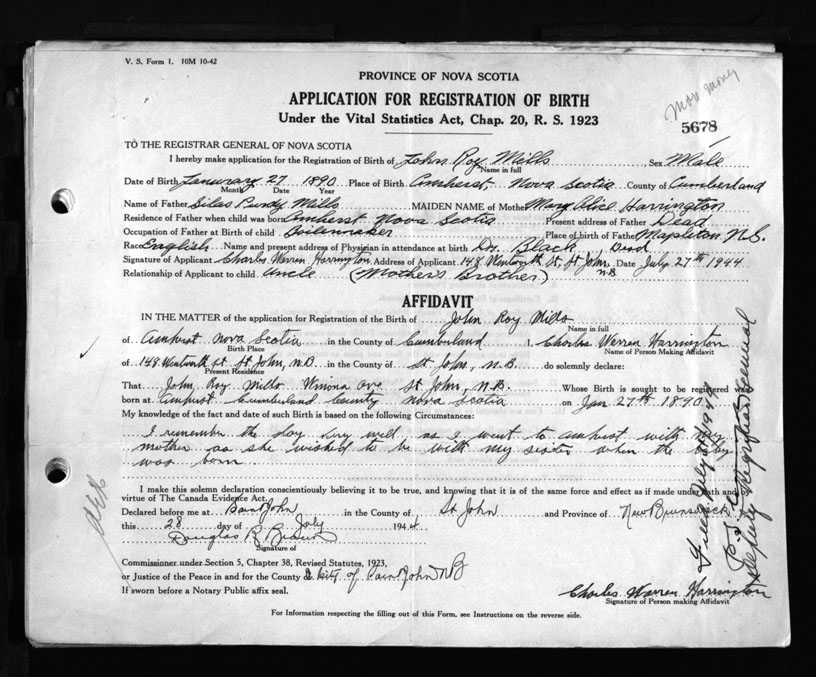 V. S. Form 1. 10M 10-42
PROVINCE OF NOVA SCOTIA
APPLICATION FOR REGISTRATION OF BIRTH
Under the Vital Statistics Act, Chap. 20, R. S. 1923
5678
TO THE REGISTRAR GENERAL OF NOVA SCOTIA
I hereby make application for the Registration of Birth of John Roy Mills Sex Male
Name in full
Date of Birth January 27 1890 Place of Birth Amherst, Nova Scotia County of Cumberland
Month Day Year
Name of Father Silas Purdy Mills MAIDEN NAME of Mother Mary Alice Harrington
Residence of Father when child was born Amherst Nova Scotia Present address of Father Dead
Occupation of Father at Birth of child Boilermaker Place of birth of Father Mapleton N.S.
Race English Name and present address of Physician in attendance at birth Dr. Black Dead
Signature of Applicant Charles Warren Harrington Address of Applicant 148 Wentworth St, St John, N.B Date July 27th 1944
Relationship of Applicant to child Uncle (Mother's Brother)
AFFIDAVIT
IN THE MATTER of the application for Registration of the Birth of John Roy Mills
Name in full
of Amherst Nova Scotia in the County of Cumberland I, Charles Warren Harrington
Birth Place Name of Person Making Affidavit
of 148 Wentworth St. St John, N.B. in the County of St John, N.B. do solemnly declare:
Present Residence
That John Roy Mills Winona Ave St John, N.B. Whose Birth is sought to be registered was
born at Amherst Cumberland County Nova Scotia on Jan 27th 1890.
My knowledge of the fact and date of such Birth is based on the following Circumstances:
I remember the day very well as I went to Amherst with my
mother as she wished to be with my sister when the baby
was born
I make this solemn declaration conscientiously believing it to be true, and knowing that it is of the same force and effect as if made under oath and by
virtue of The Canada Evidence Act.
Declared before me at Saint John in the County of St John and Province of New Brunswick
this 28 day of July 1944
Douglas R
Signature of
Commissioner under Section 5, Chapter 38, Revised Statutes, 1923,
or Justice of the Peace in and for the County & City of Saint John NB
If sworn before a Notary Public affix seal.
Charles Warren Harrington
Signature of Person making Affidavit
For Information respecting the filling out of this Form, see Instructions on the reverse side.
Deputy Registrar General